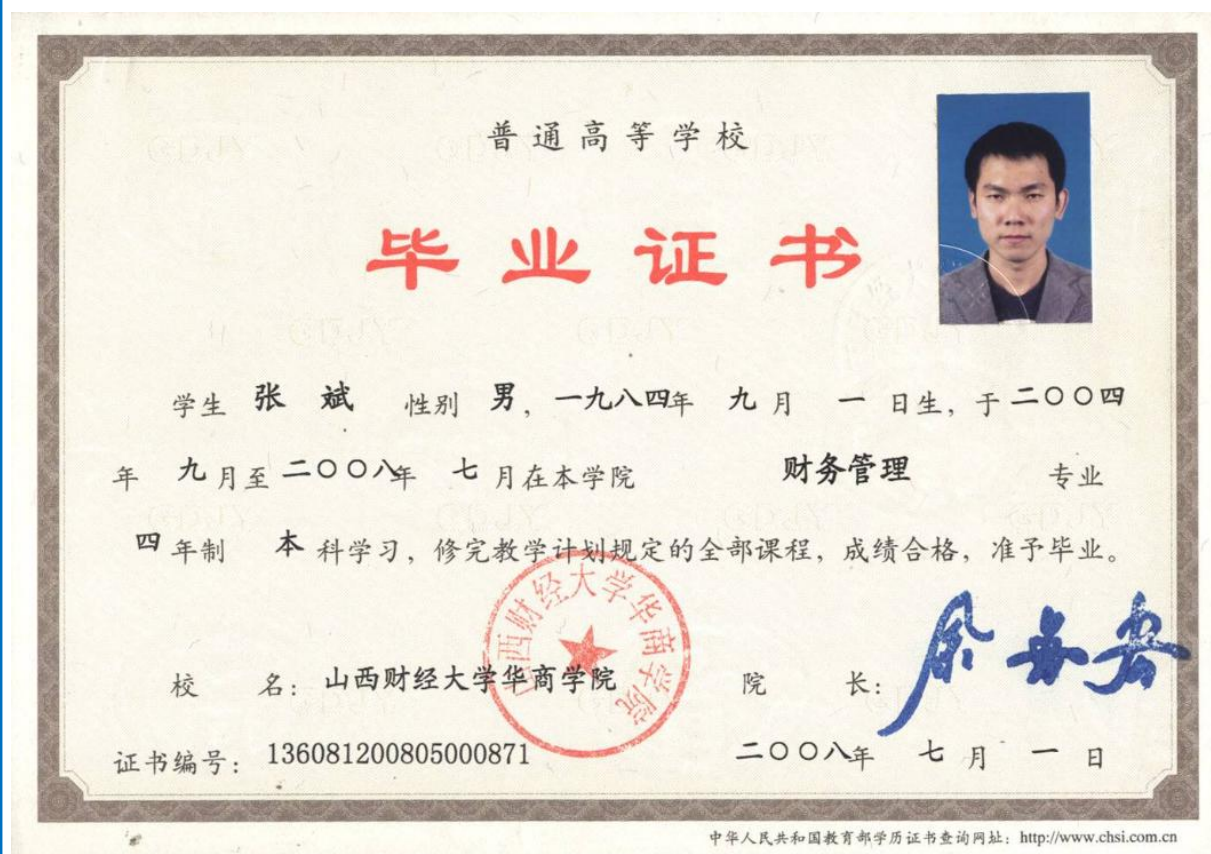 普通高等学校
毕业证书
学生 张 斌 性别 男，一九八四年 九月 一日生，于二〇〇四
年 九月至二〇〇八年 七月在本学院 财务管理 专业
四年制 本科学习，修完教学计划规定的全部课程，成绩合格，准予毕业。
山西财经大学华商学院
校 名：山西财经大学华商学院 院 长：
证书编号：136081200805000871 二〇〇八年 七月 一日
中华人民共和国教育部学历证书查询网址：http://www.chsi.com.cn